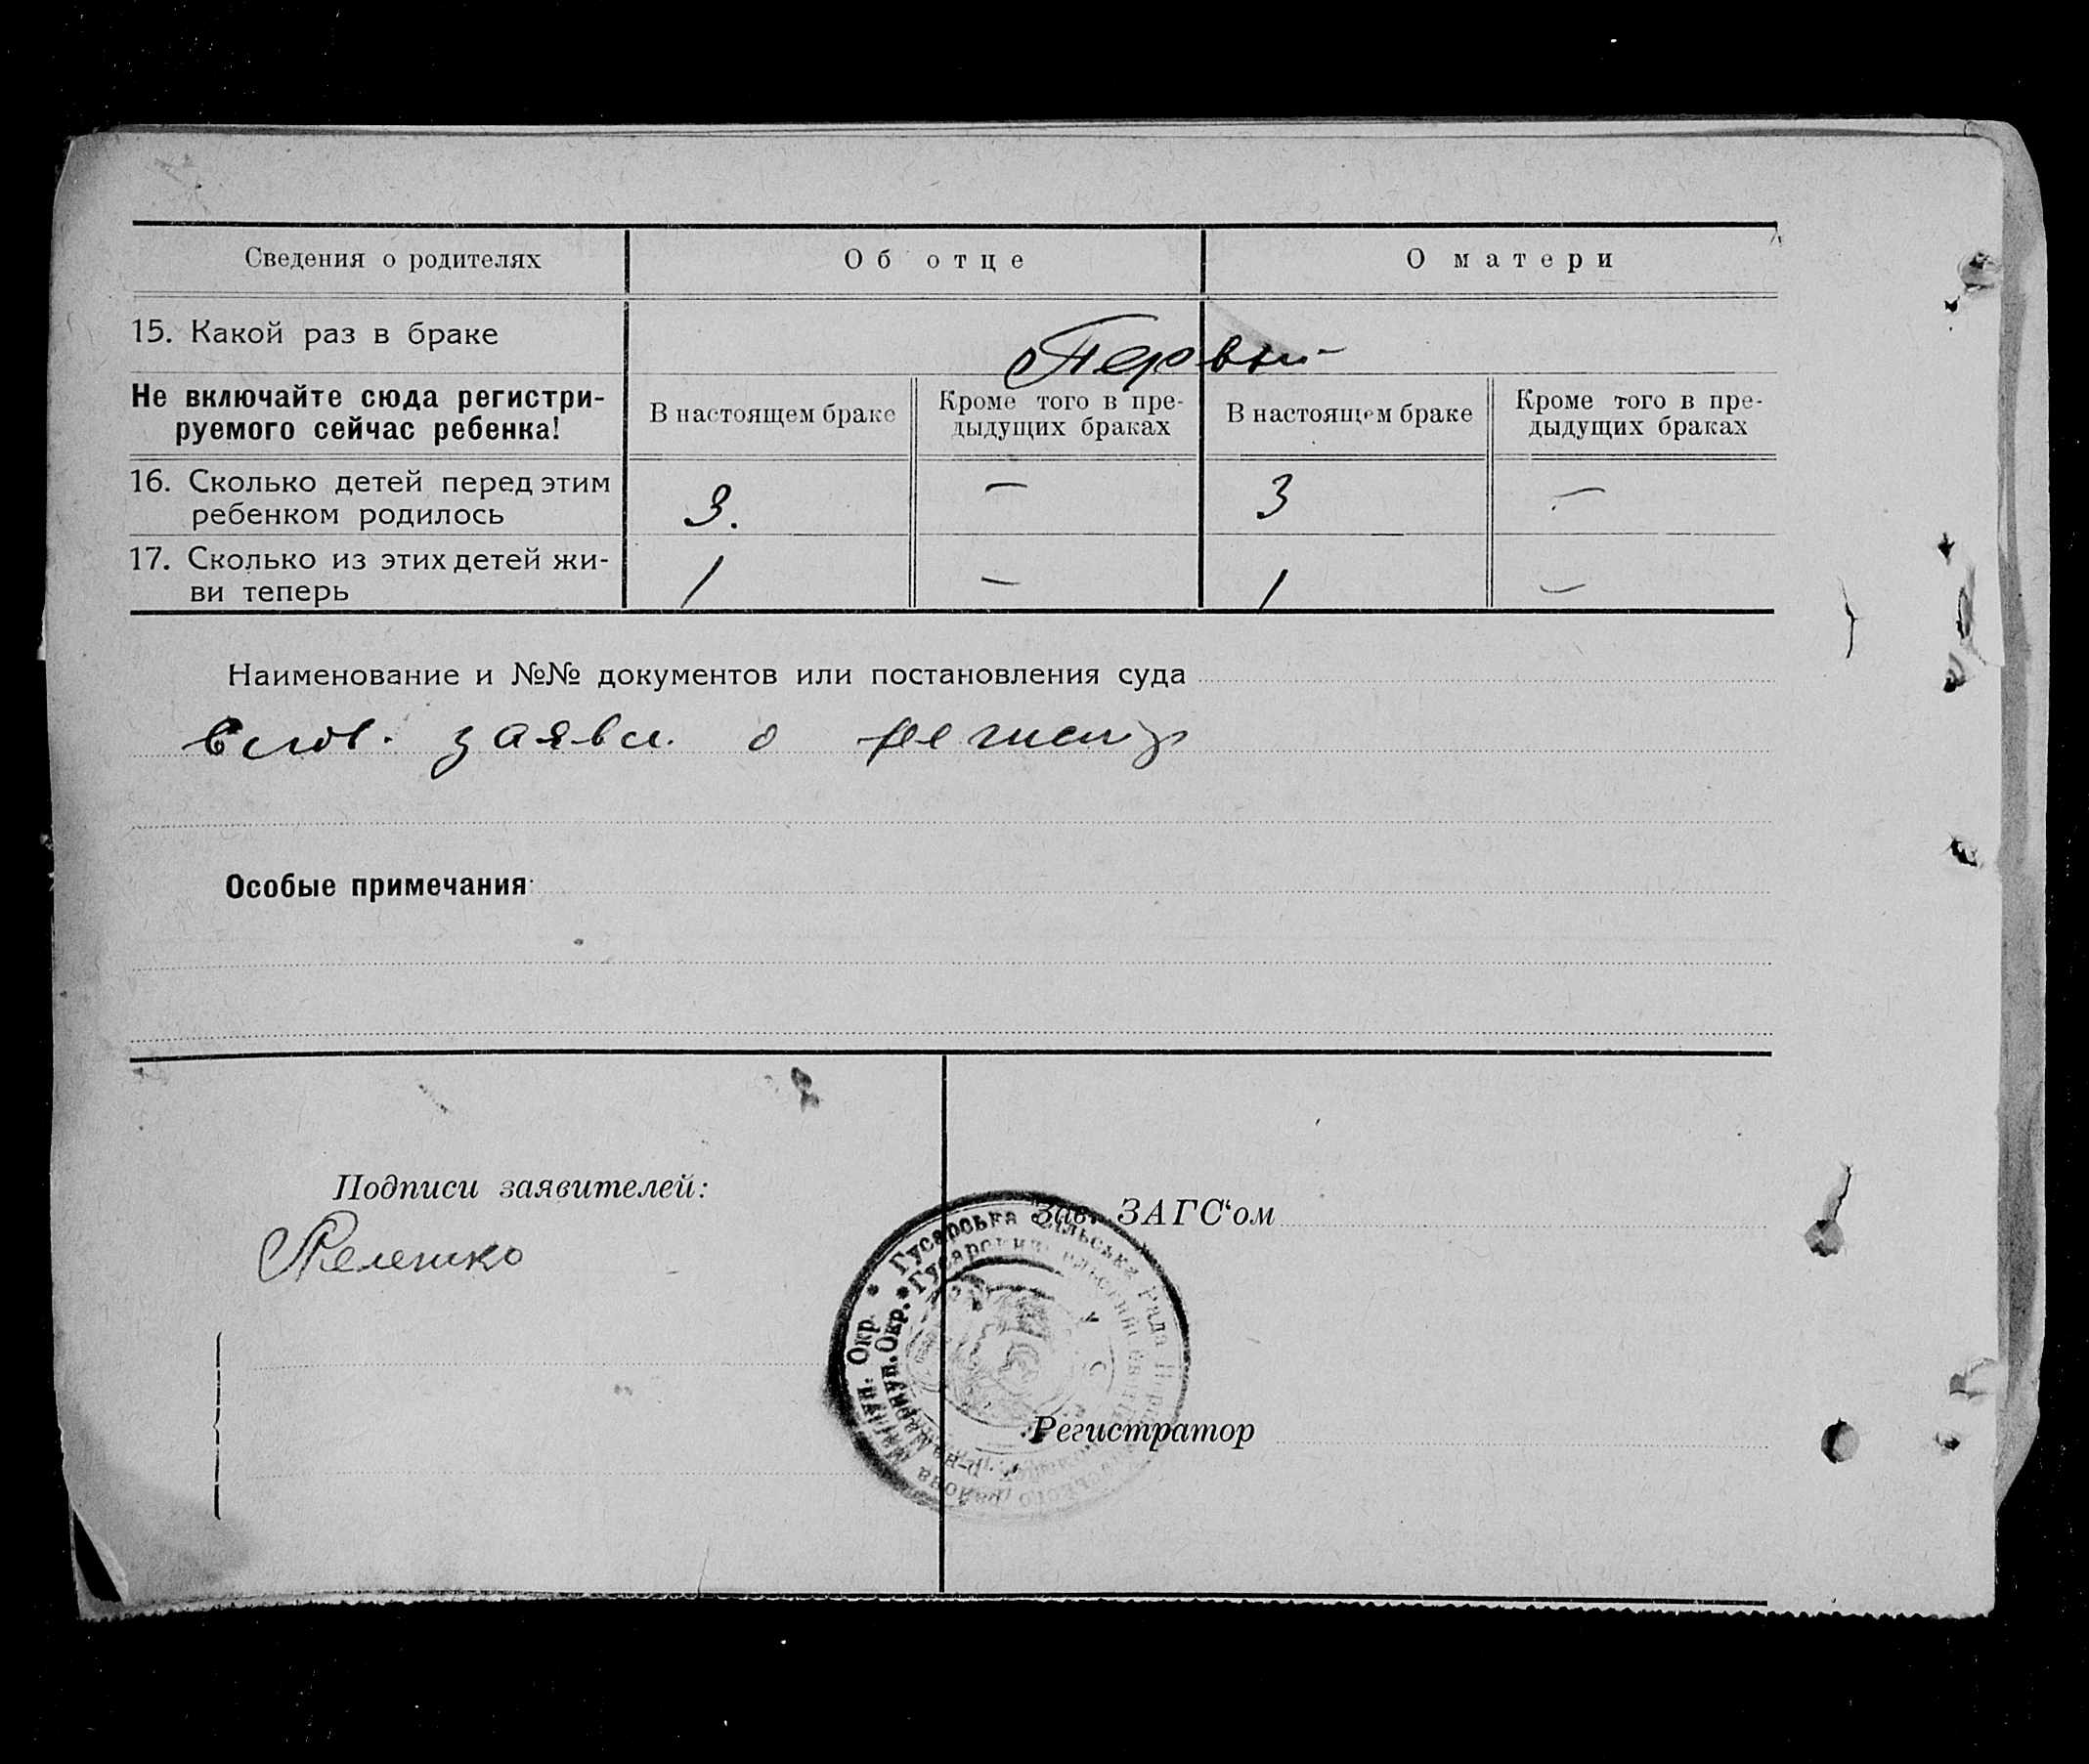 Сведения о родителях
Об отце
О матери
15. Какой раз в браке
Первый
Не включайте сюда регистри-
руемого сейчас ребенка!
В настоящем браке
Кроме того в пре-
дыдущих браках
В настоящем браке
Кроме того в пре-
дыдущих браках
16. Сколько детей перед этим
ребенком родилось
3.
—
3
—
17. Сколько из этих детей жи-
ви теперь
1
—
1
—
Наименование и №№ документов или постановления суда
заявл. о регистр
Особые примечания
Подписи заявителей:
Зав. ЗАГС‘ом
Регистратор
Гусарська сільська Рада
района Маріуп. Окр.
Гусарский
р-на Мариуп. Окр.